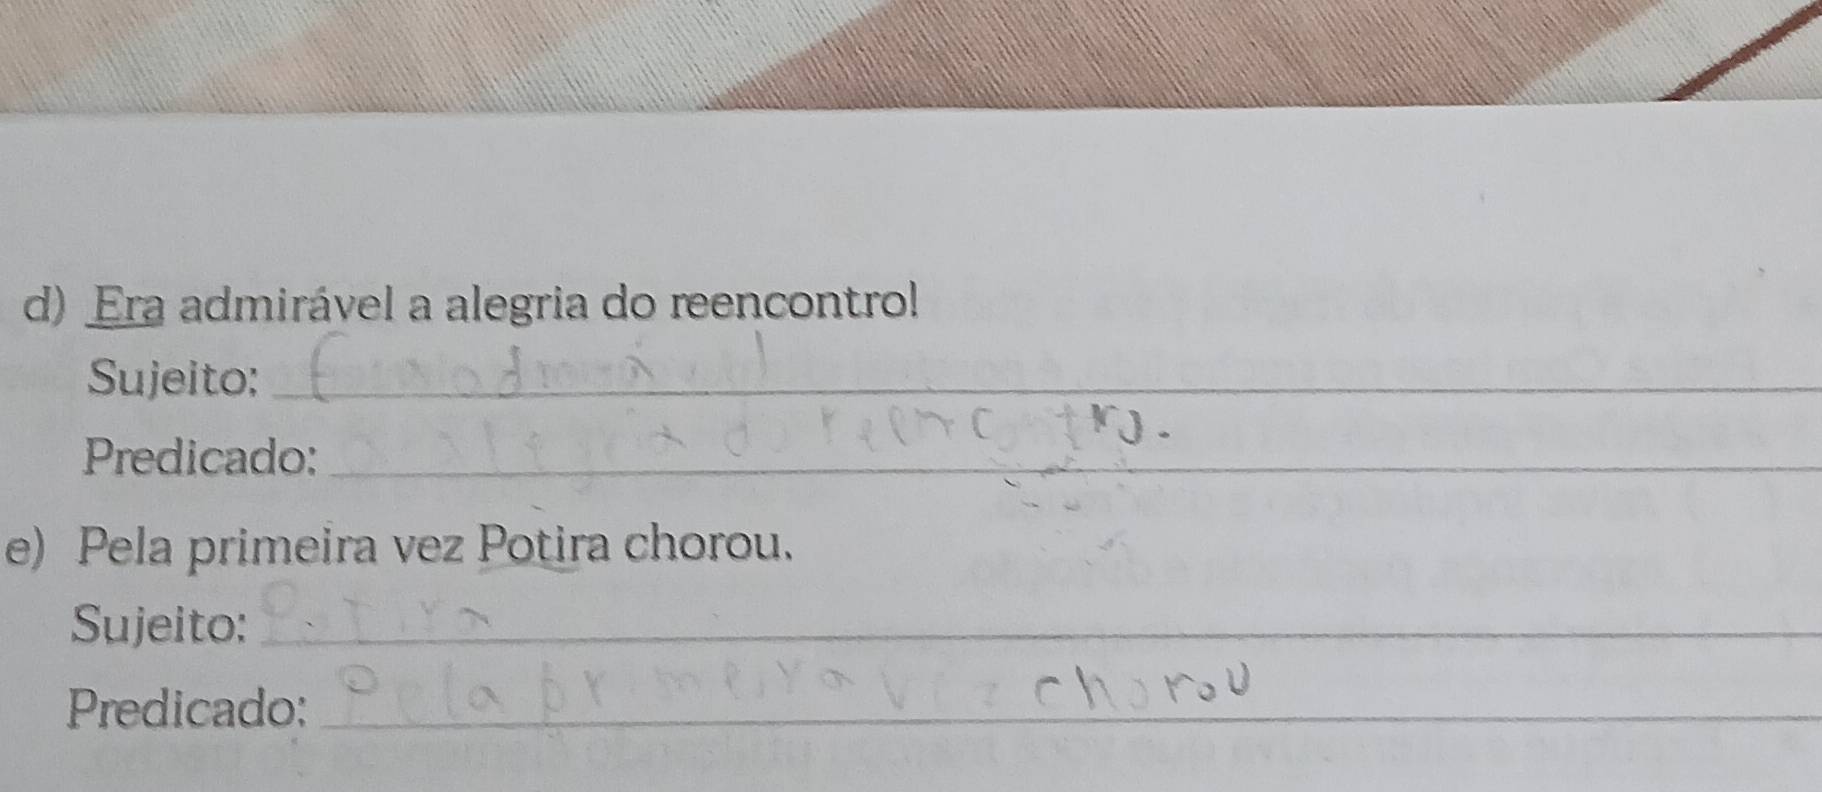 d) Era admirável a alegria do reencontro!
Sujeito: Era admirável
Predicado: a alegria do reencontro.
e) Pela primeira vez Potira chorou.
Sujeito: Potira
Predicado: Pela primeira vez chorou